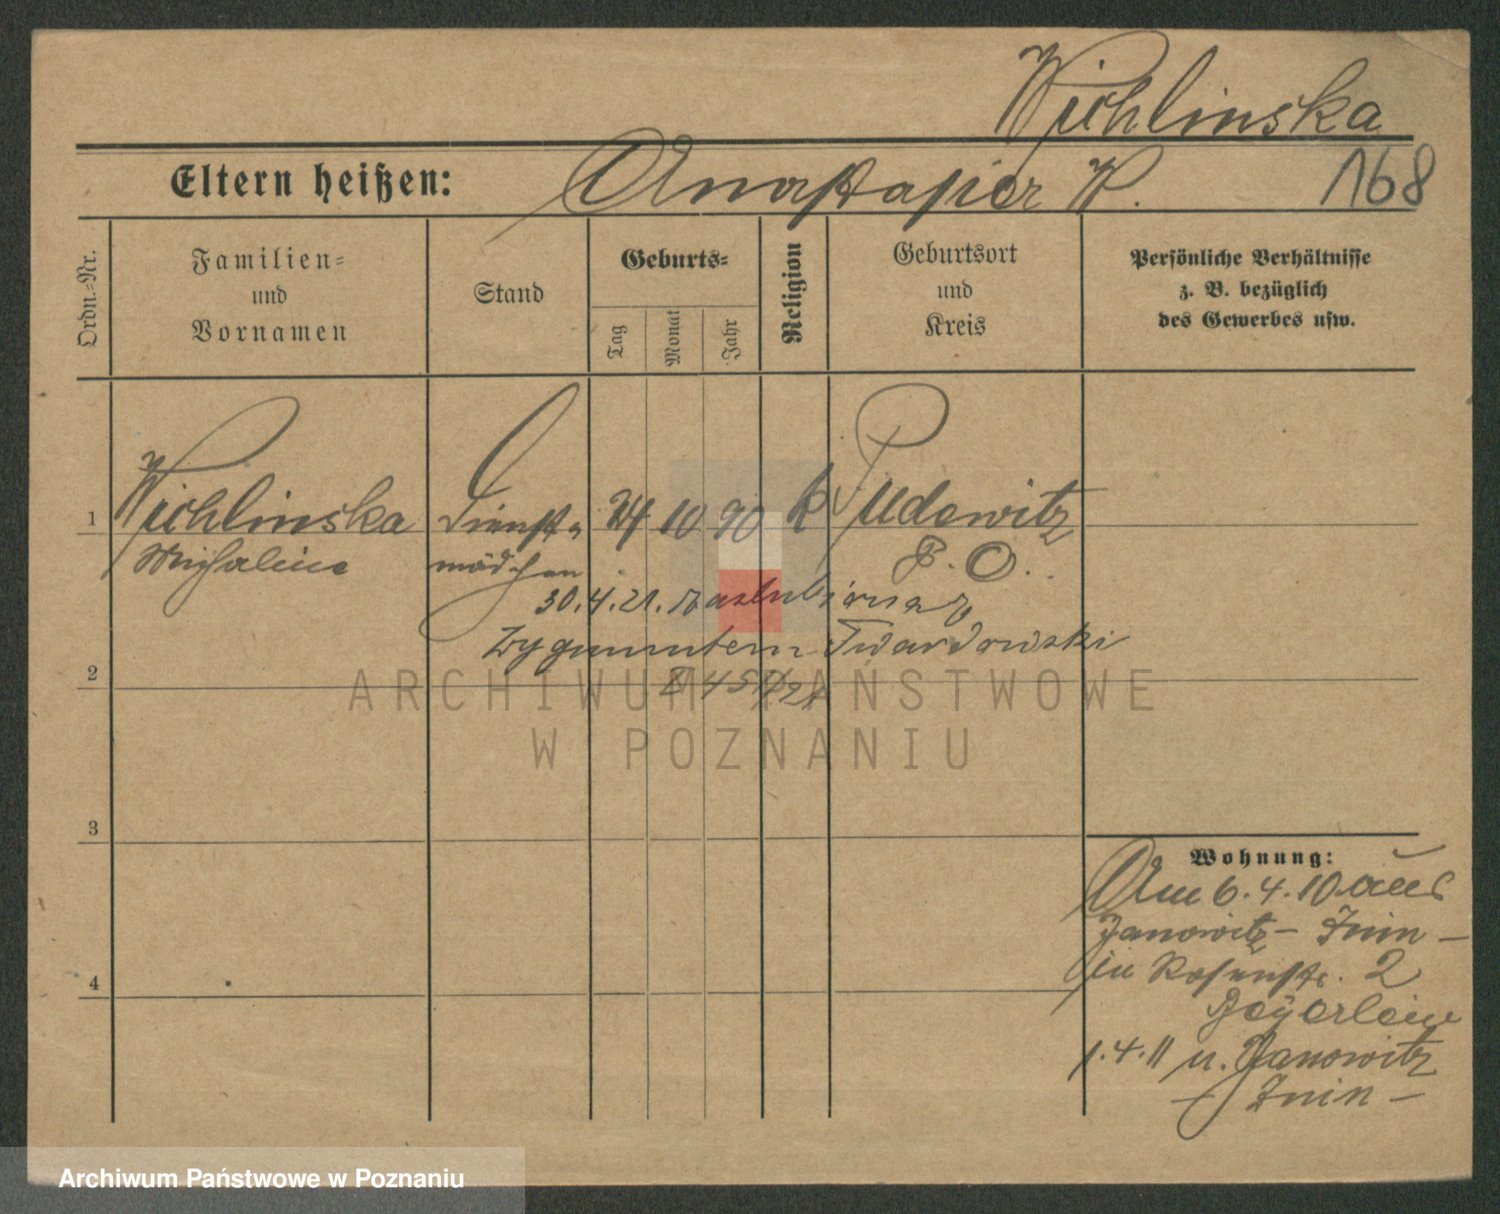 Wichlinska
Eltern heißen: Anastasia W. 168
Ordn.-Nr.
Familien-
und
Vornamen
Stand
Geburts-
Tag
Monat
Jahr
Religion
Geburtsort
und
Kreis
Persönliche Verhältnisse
z. B. bezüglich
des Gewerbes usw.
1 Wichlinska Dienst- 24 10 90 k Pudewitz
Michaline mädchen P. O.
30.4.21. zaślubiona z
Zygmuntem Twardowski
2
ARCHIWUM PAŃSTWOWE
W POZNANIU
3
Wohnung:
Am 6.4.10 aus
Janowitz – Znin –
in Rosenstr. 2
4
1.4.11 n. Janowitz
– Znin –
Archiwum Państwowe w Poznaniu